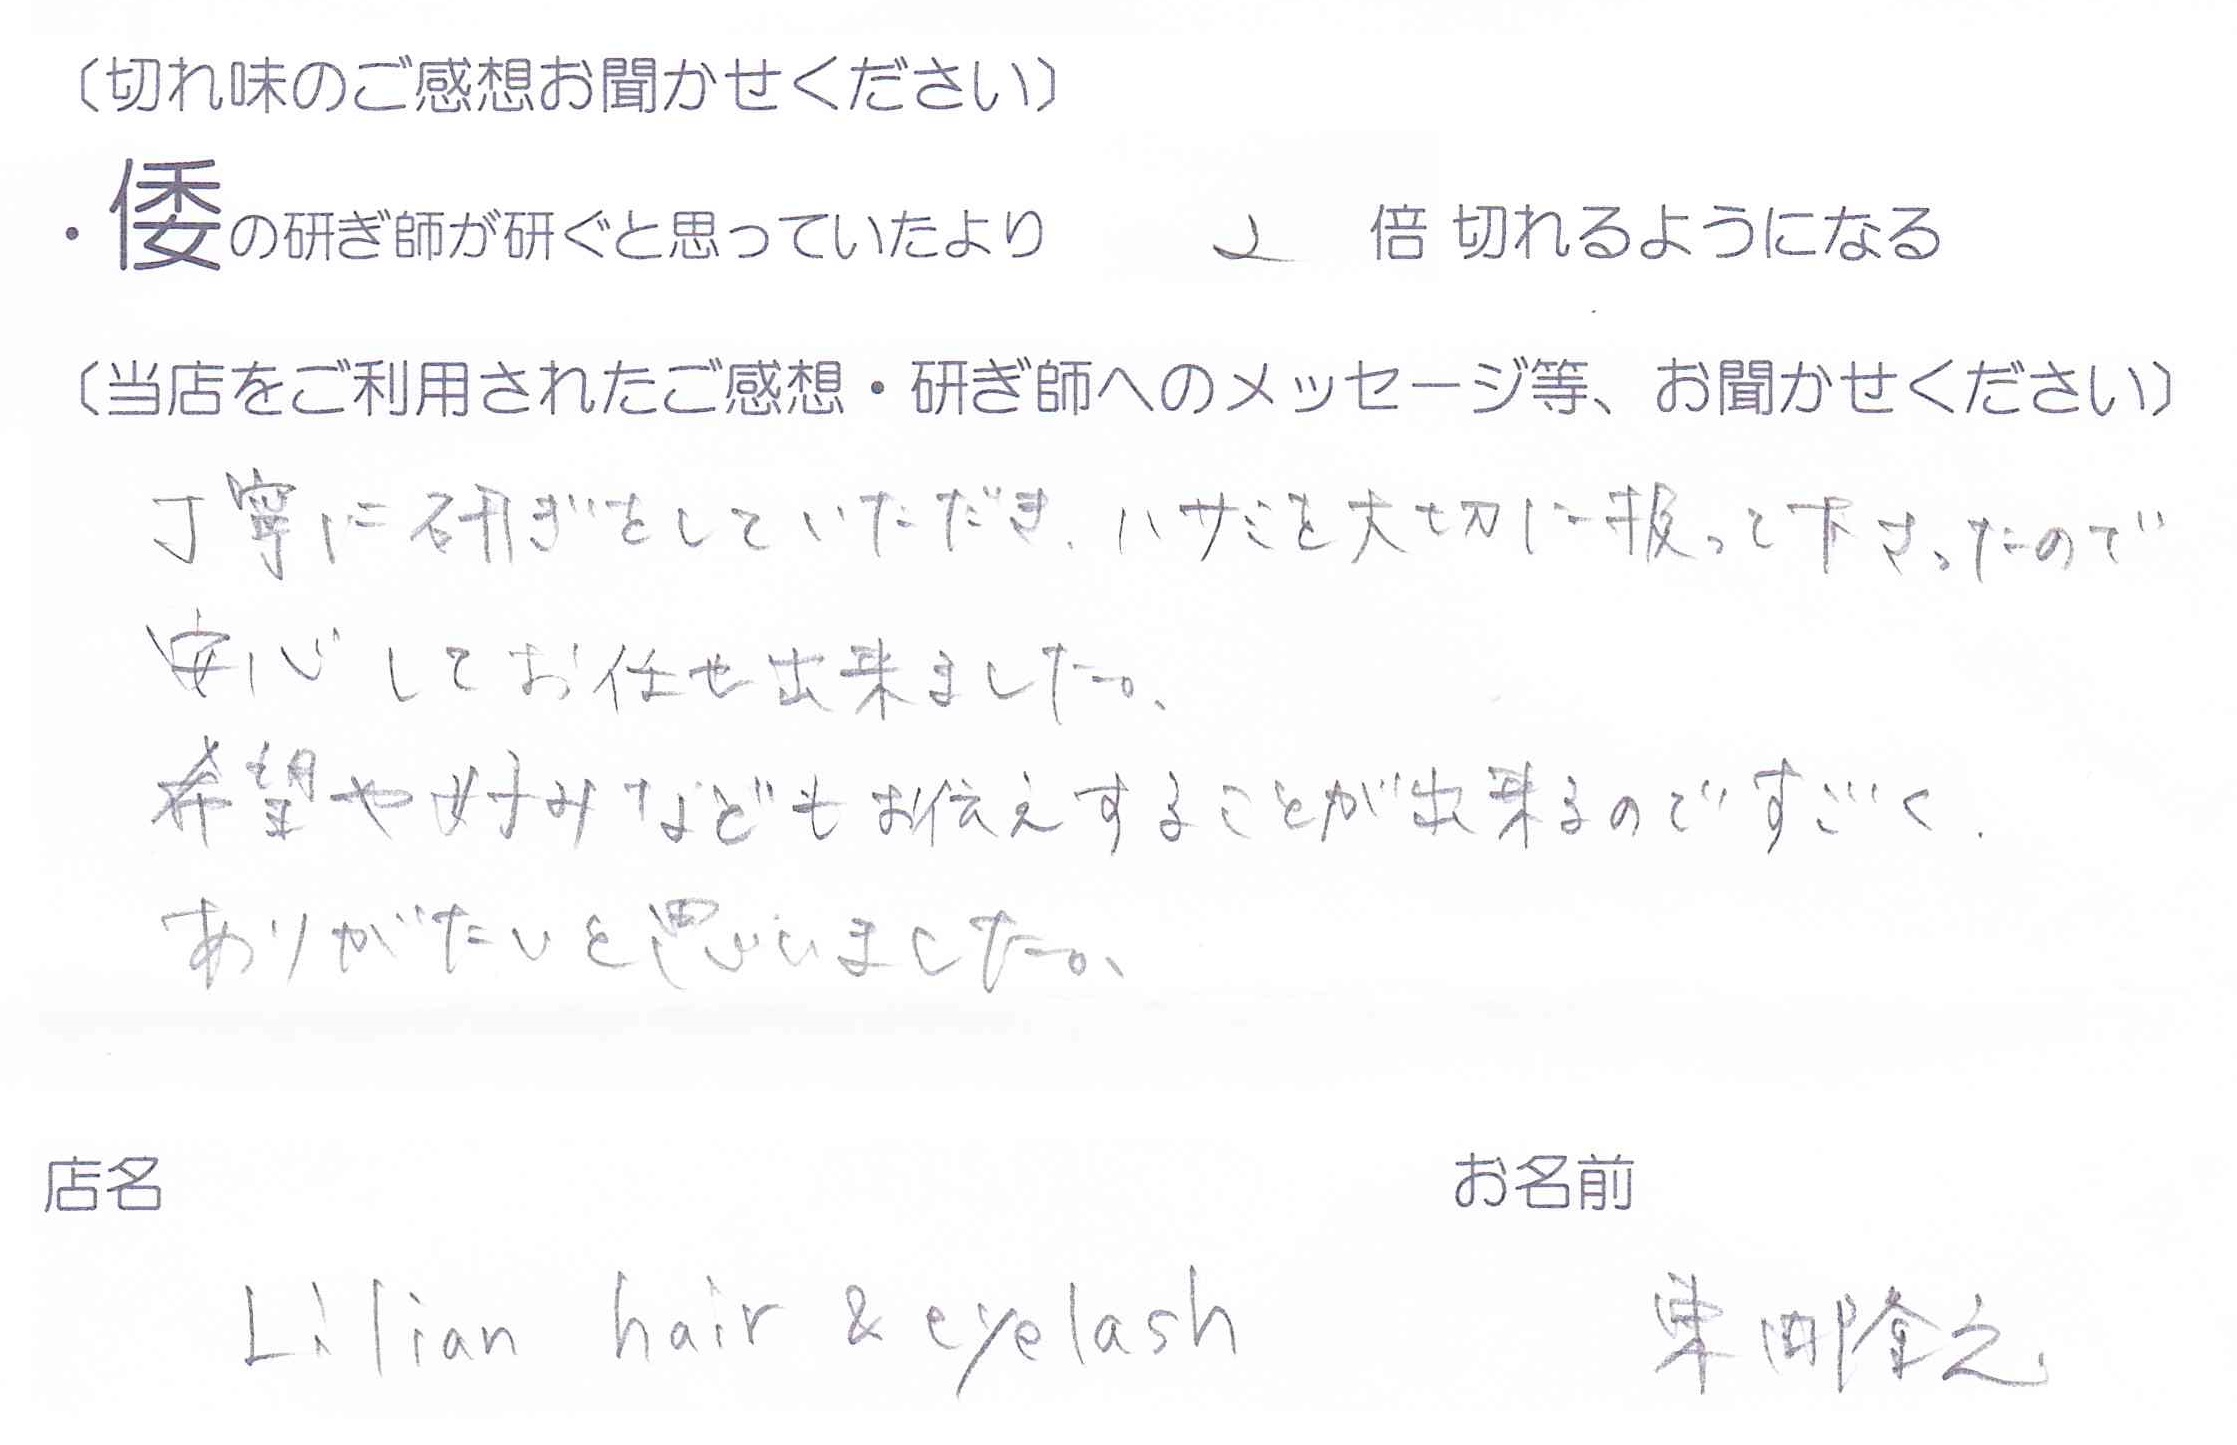 （切れ味のご感想お聞かせください）
・倭の研ぎ師が研ぐと思っていたより 2 倍 切れるようになる
（当店をご利用されたご感想・研ぎ師へのメッセージ等、お聞かせください）
丁寧に研ぎをしていただき、ハサミを大切に扱って下さったので
安心してお任せ出来ました。
希望や好みなどもお伝えすることが出来るのですごく、
ありがたいと思いました。
店名 お名前
Lilian hair & eyelash 東田隆之